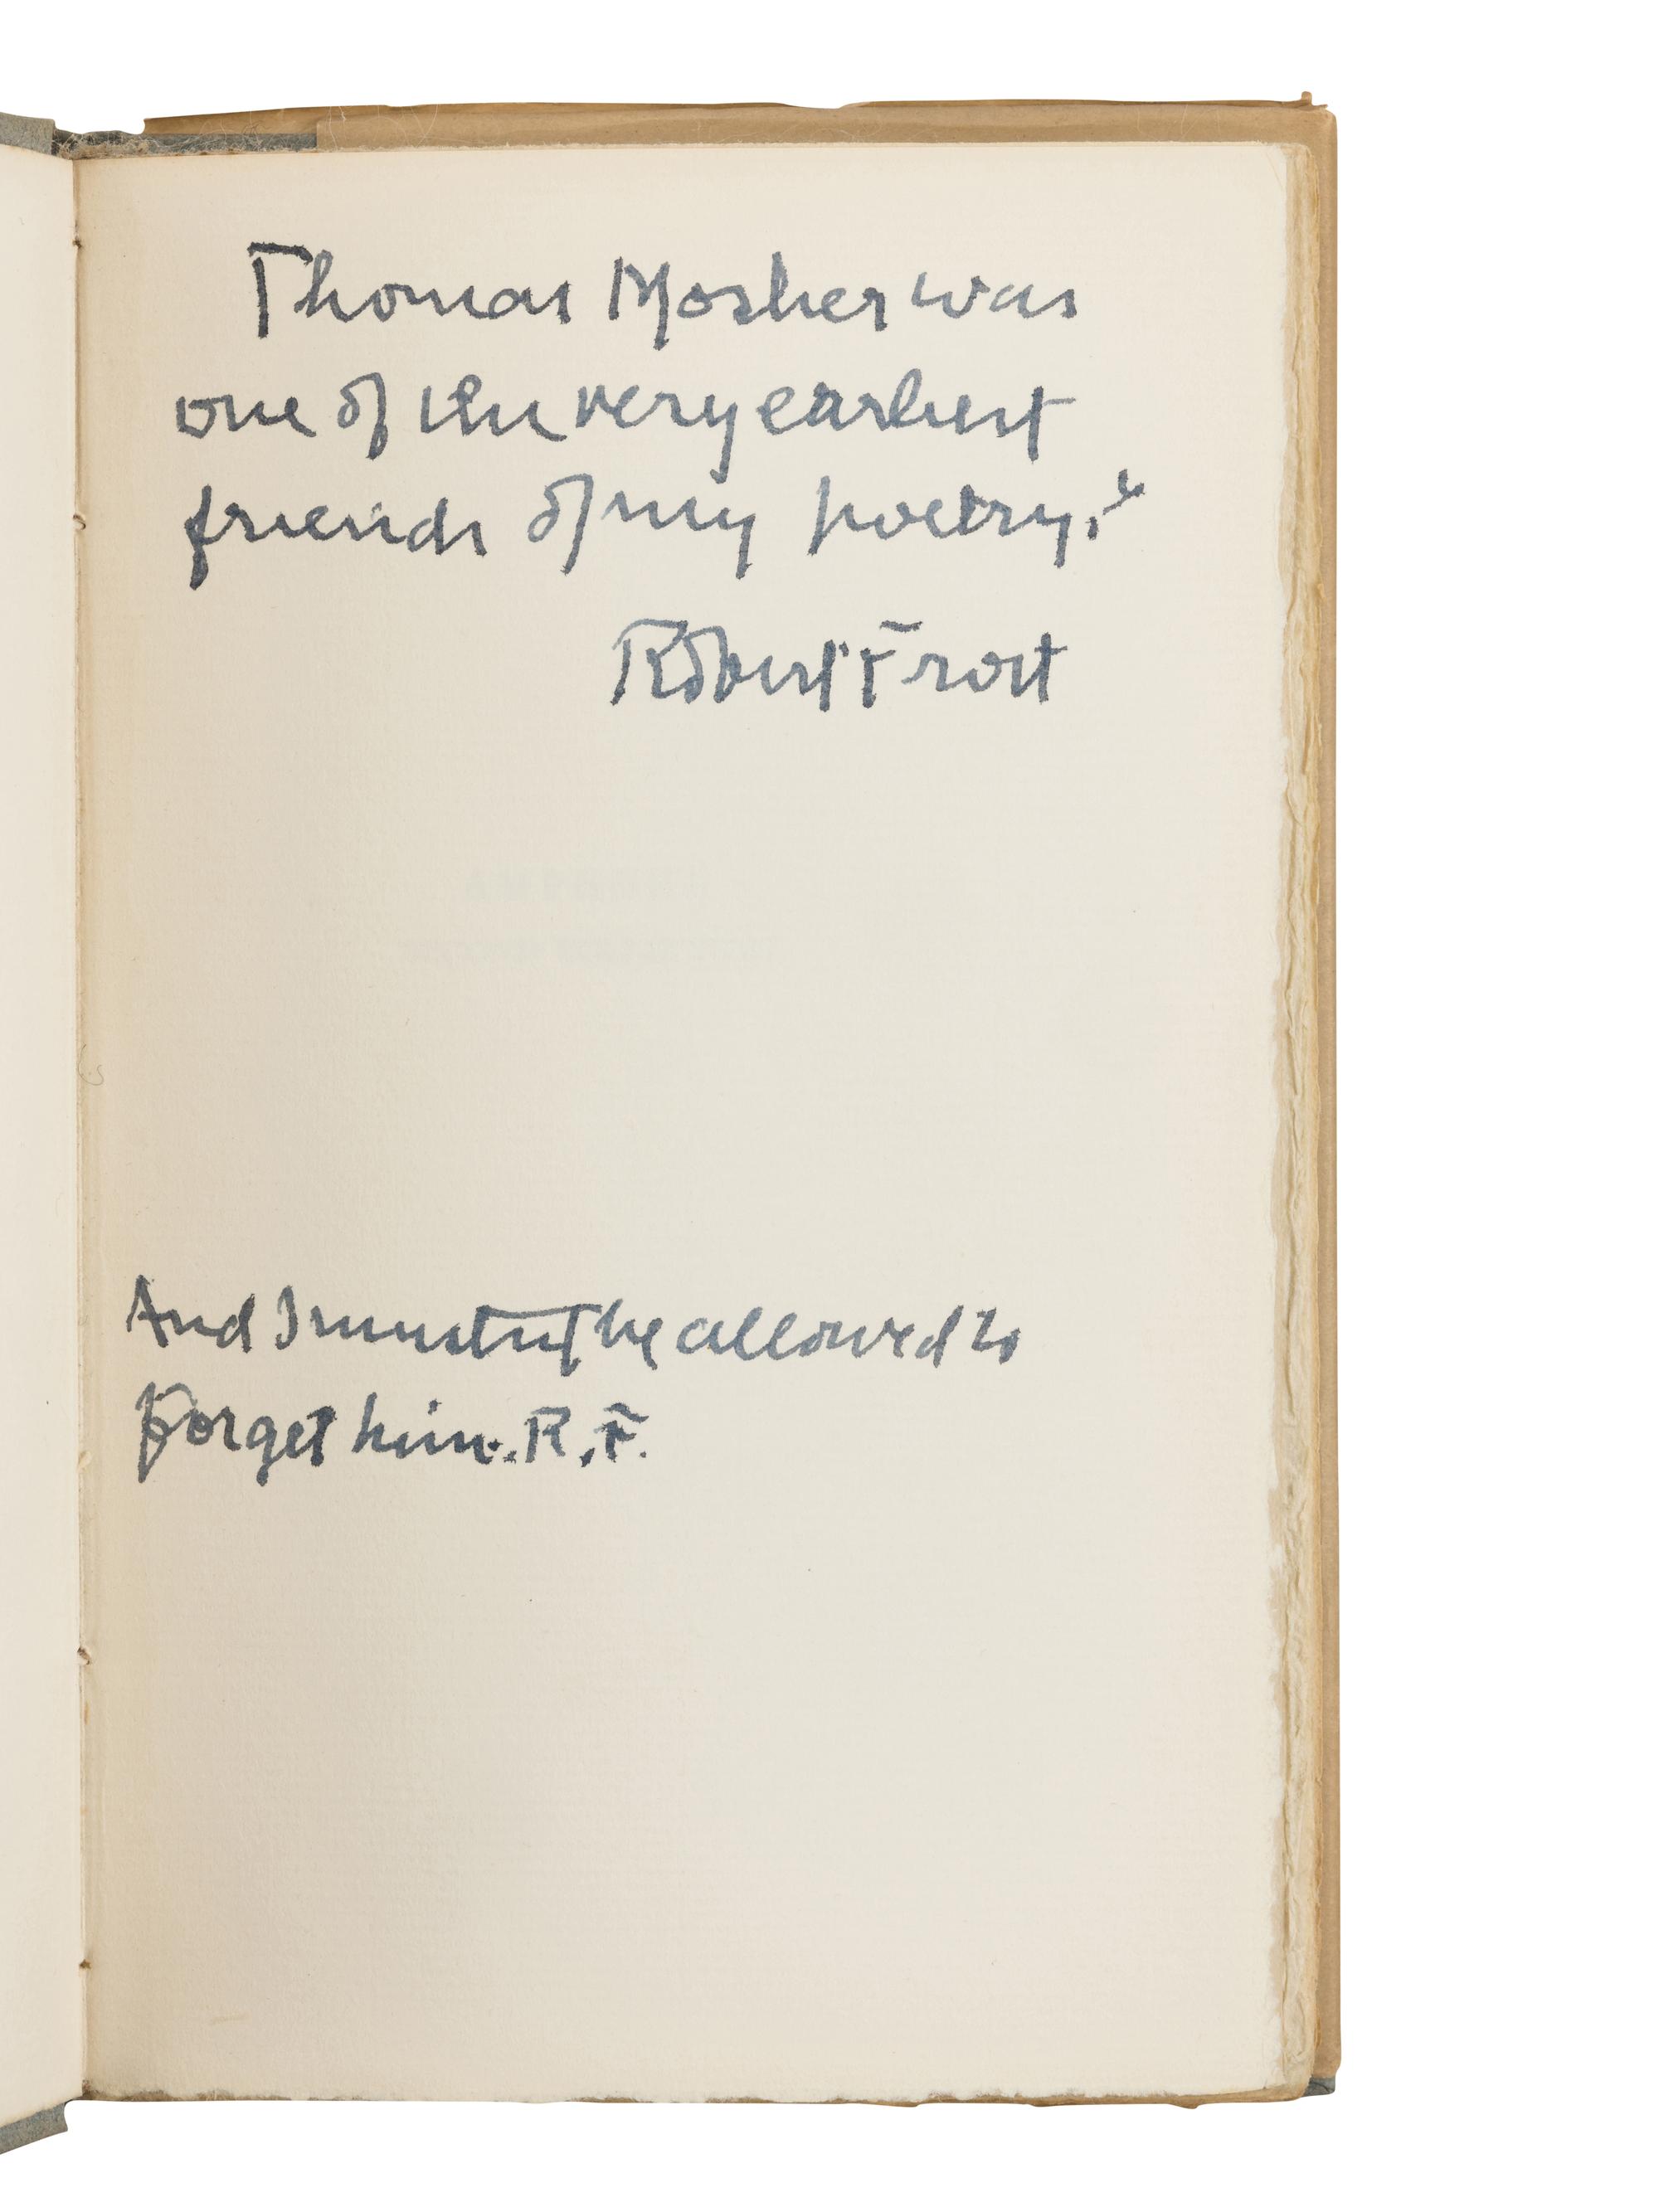 Thomas Mosher was
one of the very earliest
friends of my poetry.
Robert Frost
And I mustnt be allowed to
forget him. R.F.